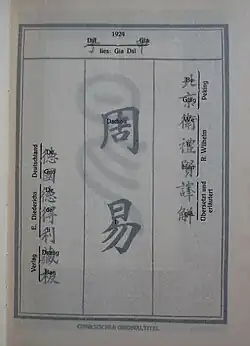 1924
lies: Gia Dsï
北京衛禮賢譯解
Peking
R. Wilhelm
Übersetzt und
erläutert
周易
德國德得利藏板
Deutschland
E. Diederichs
Verlag
CHINESISCHER ORIGINALTITEL